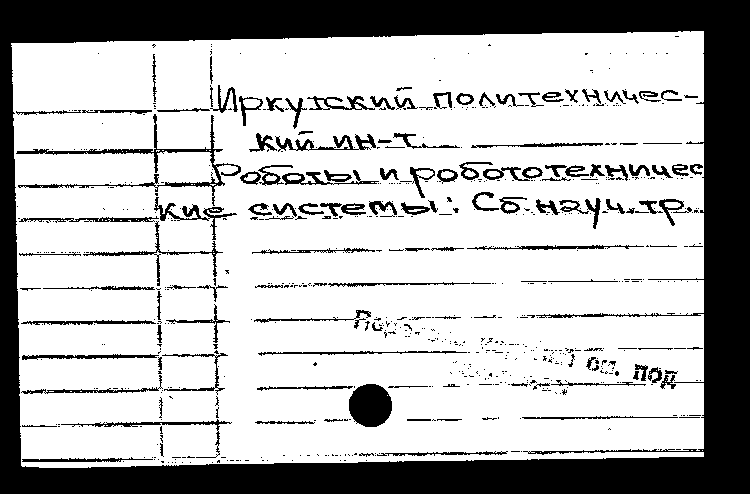 Иркутский политехничес-
кий ин-т.
Роботы и робототехничес
кие системы: Сб. науч. тр.
см. под